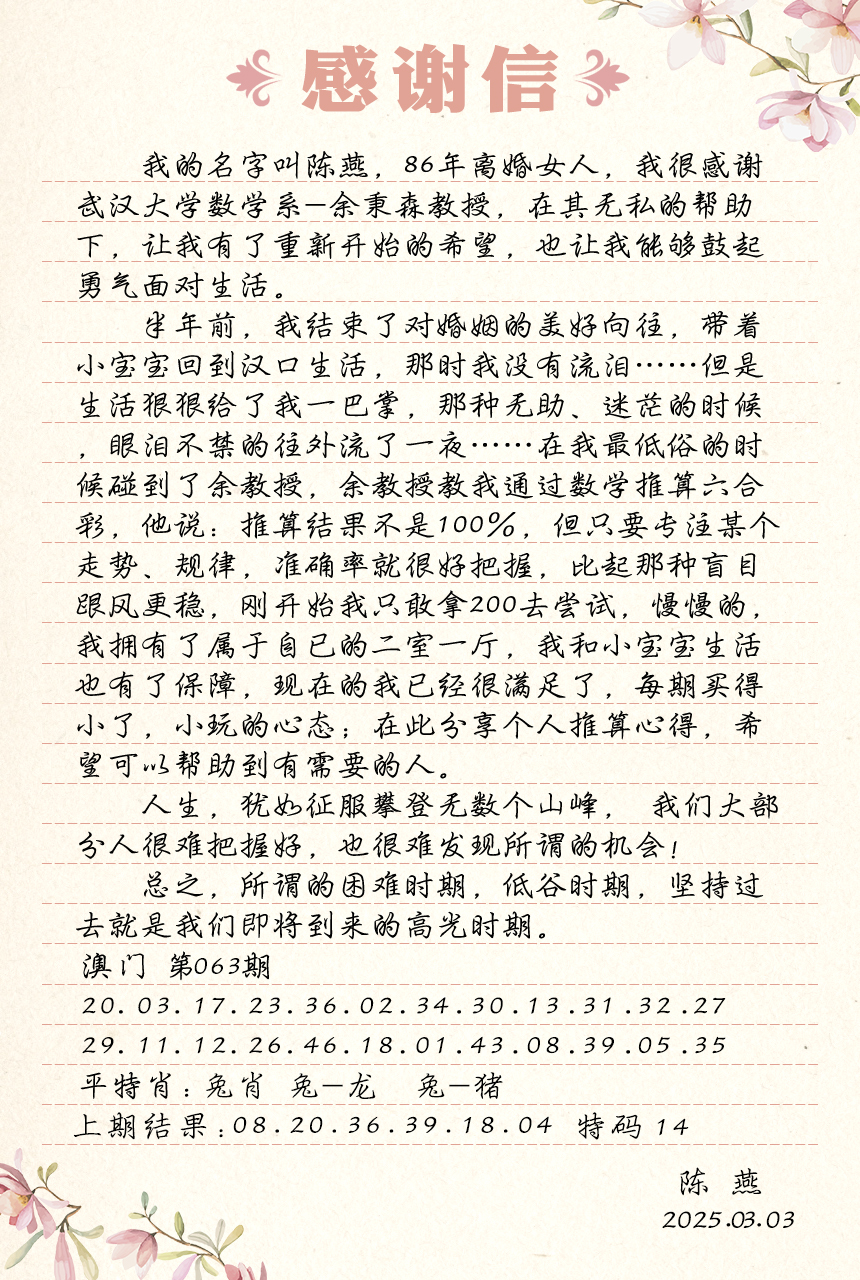 感谢信
我的名字叫陈燕，86年离婚女人，我很感谢
武汉大学数学系—余秉森教授，在其无私的帮助
下，让我有了重新开始的希望，也让我能够鼓起
勇气面对生活。
半年前，我结束了对婚姻的美好向往，带着
小宝宝回到汉口生活，那时我没有流泪……但是
生活狠狠给了我一巴掌，那种无助、迷茫的时候
，眼泪不禁的往外流了一夜……在我最低俗的时
候碰到了余教授，余教授教我通过数学推算六合
彩，他说：推算结果不是100%，但只要专注某个
走势、规律，准确率就很好把握，比起那种盲目
跟风更稳，刚开始我只敢拿200去尝试，慢慢的，
我拥有了属于自已的二室一厅，我和小宝宝生活
也有了保障，现在的我已经很满足了，每期买得
小了，小玩的心态；在此分享个人推算心得，希
望可以帮助到有需要的人。
人生，犹如征服攀登无数个山峰， 我们大部
分人很难把握好，也很难发现所谓的机会！
总之，所谓的困难时期，低谷时期，坚持过
去就是我们即将到来的高光时期。
澳门 第063期
20.03.17.23.36.02.34.30.13.31.32.27
29.11.12.26.46.18.01.43.08.39.05.35
平特肖：兔肖 兔—龙 兔—猪
上期结果：08.20.36.39.18.04 特码 14
陈 燕
2025.03.03